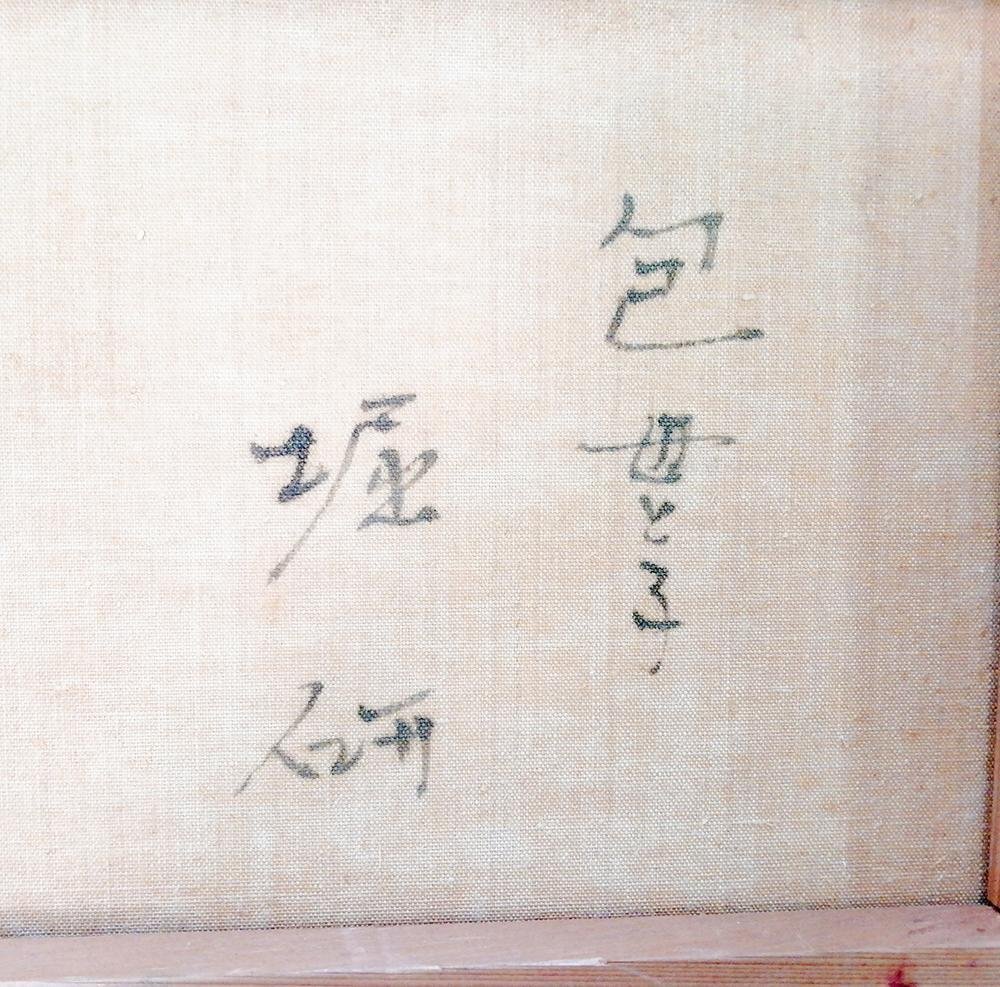 包 母と子
堀 研